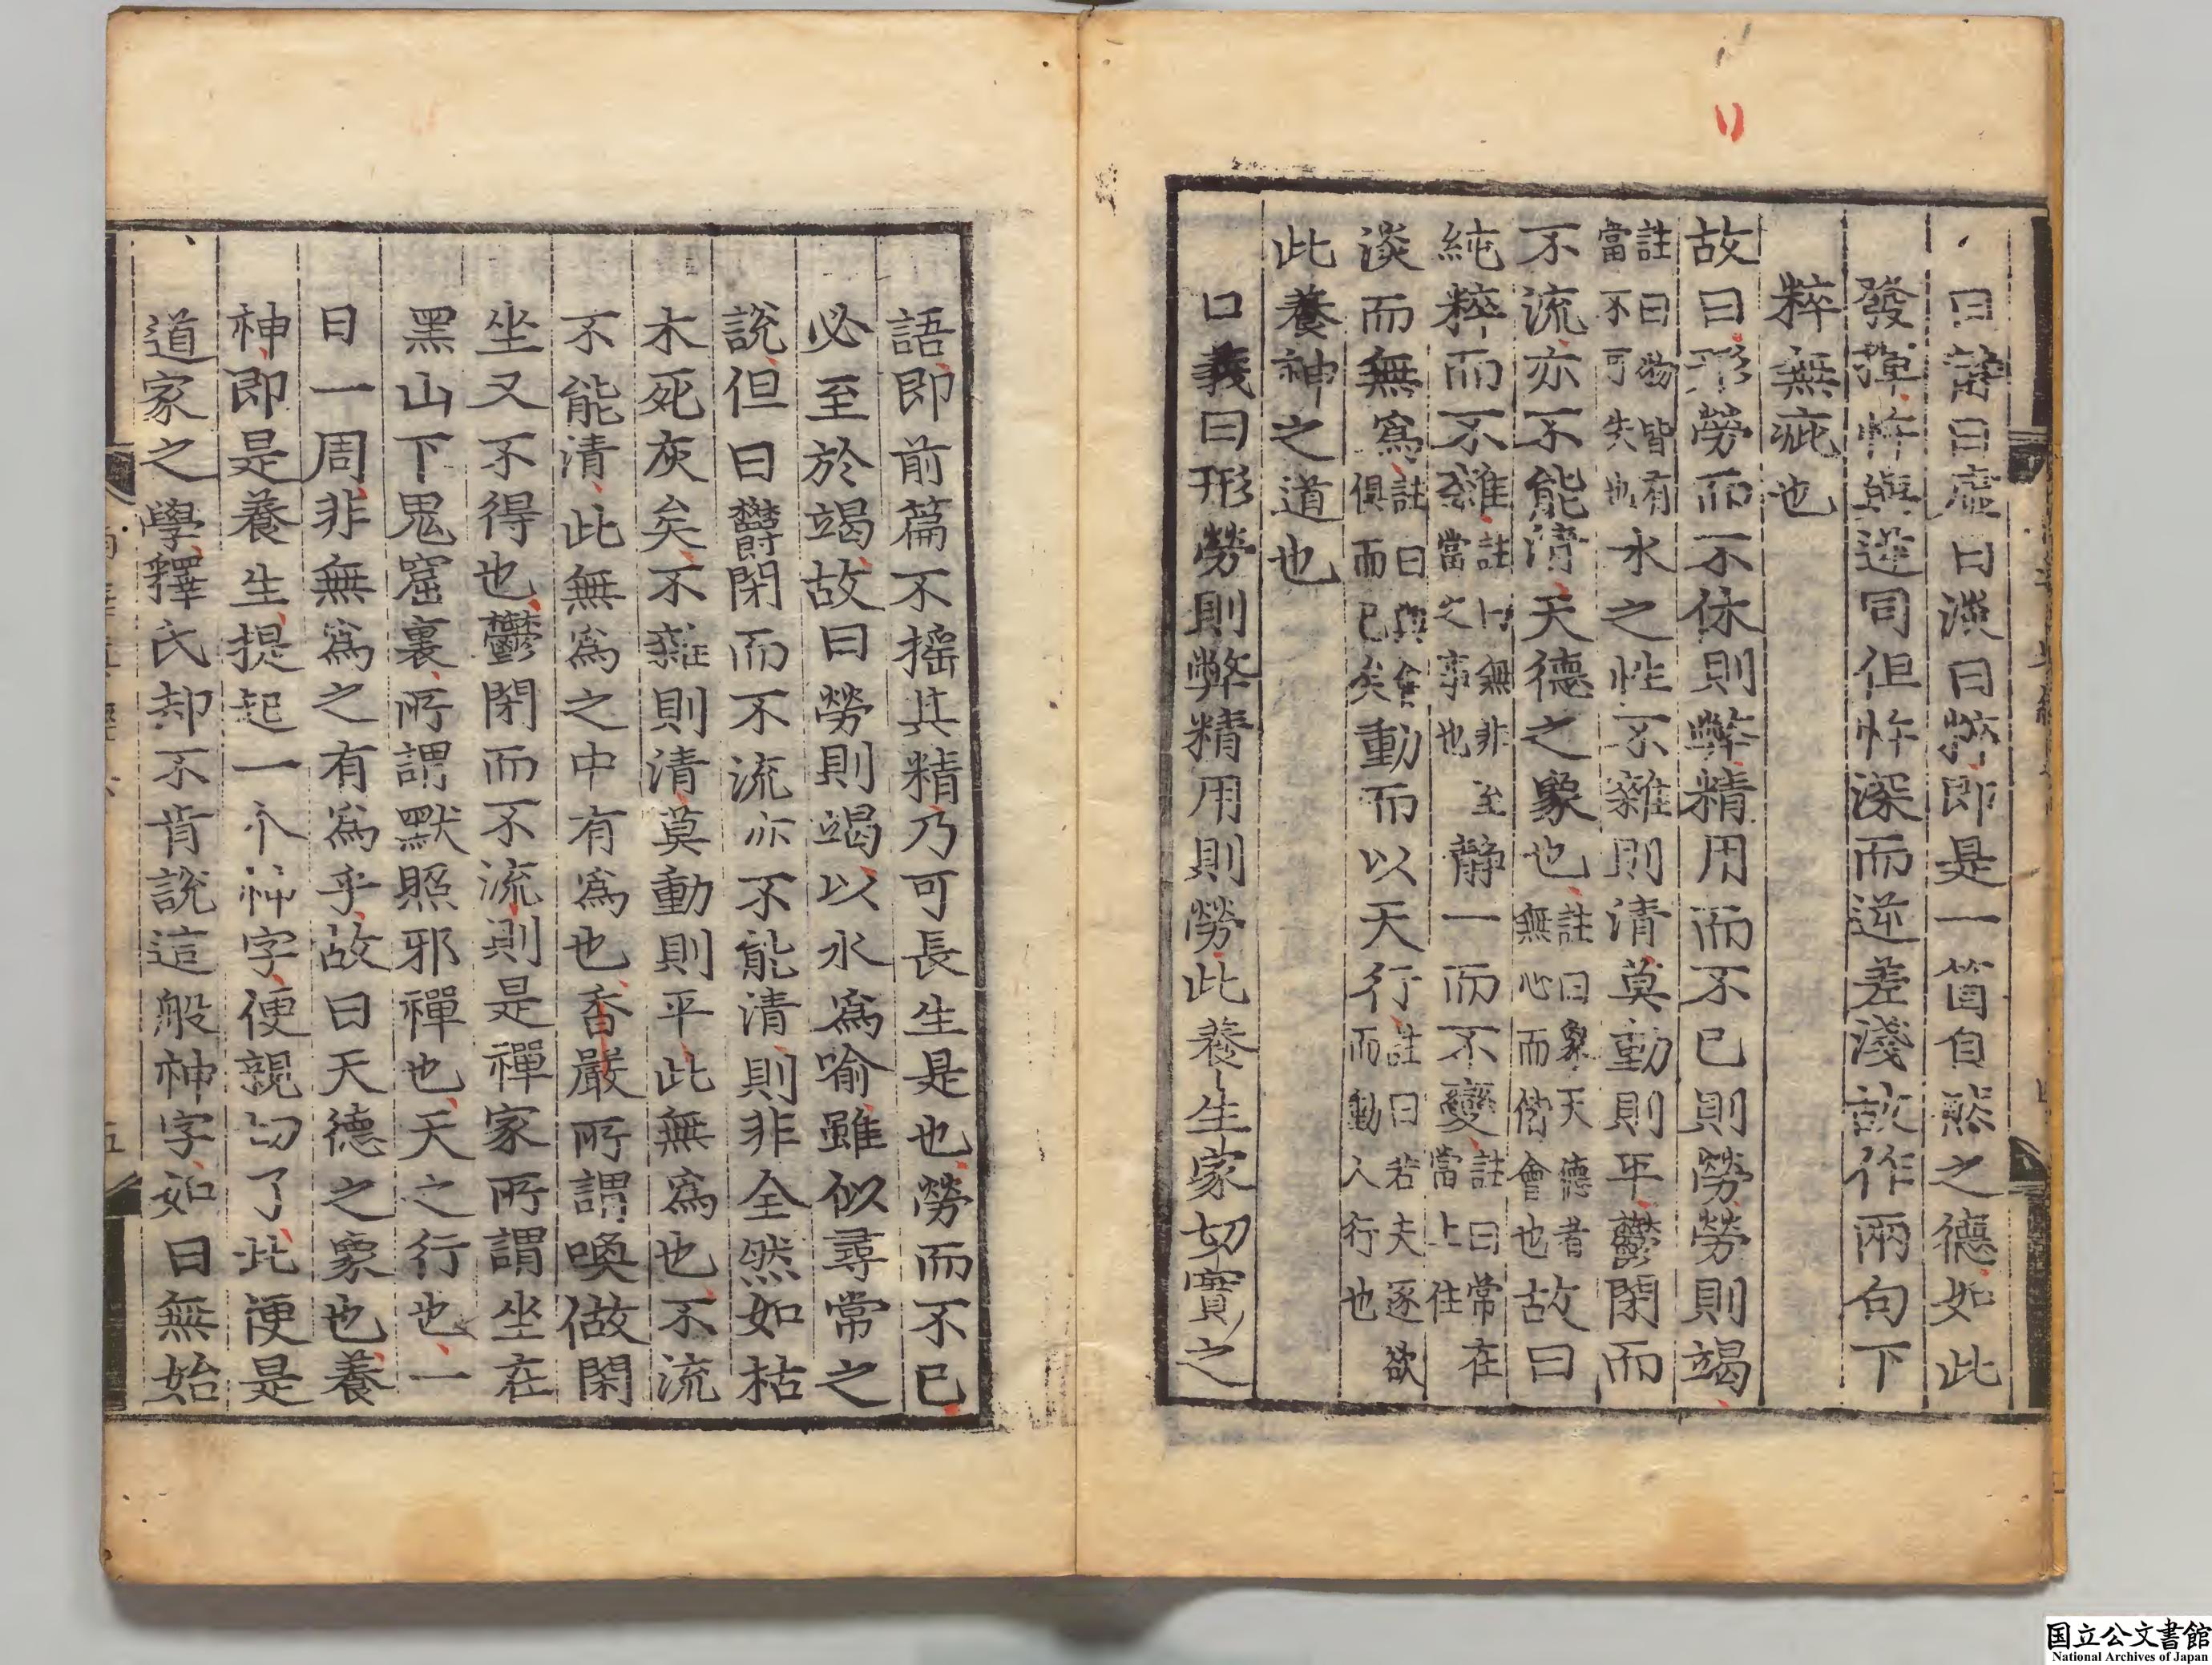 曰靜曰虛曰淡曰粹即是一箇自然之德如此
發揮忤與逆同但忤深而逆差淺故作兩句下
粹無疵也
故曰形勞而不休則弊精用而不已則勞勞則竭
註曰物皆有當不可失也水之性不雜則清莫動則平鬱閉而
不流亦不能清天德之象也註曰象天德者無心而偕會也故曰
純粹而不雜註曰無非至當之事也靜一而不變註曰常在當上住
淡而無爲註曰與會俱而已矣動而以天行註曰若夫逐欲而動人行也
此養神之道也
口義曰形勞則弊精用則勞此養生家切實之
語即前篇不搖其精乃可長生是也勞而不已
必至於竭故曰勞則竭以水爲喻雖似尋常之
說但曰鬱閉而不流亦不能清則非全然如枯
木死灰矣不雜則清莫動則平此無爲也不流
不能清此無爲之中有爲也香嚴所謂喚做閑
坐又不得也鬱閉而不流則是禪家所謂坐在
黑山下鬼窟裏所謂默照邪禪也天之行也一
日一周非無爲之有爲乎故曰天德之象也養
神即是養生提起一个神字便親切了此便是
道家之學釋氏却不肯說這般神字如曰無始
五
国立公文書館
National Archives of Japan